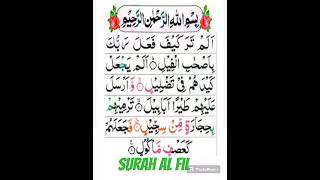 بِسْمِ اللّٰهِ الرَّحْمٰنِ الرَّحِيْمِ
اَلَمْ تَرَ كَيْفَ فَعَلَ رَبُّكَ
بِاَصْحٰبِ الْفِيْلِ ۝ اَلَمْ يَجْعَلْ
كَيْدَهُمْ فِيْ تَضْلِيْلٍ ۝ وَّاَرْسَلَ
عَلَيْهِمْ طَيْرًا اَبَابِيْلَ ۝ تَرْمِيْهِمْ
بِحِجَارَةٍ مِّنْ سِجِّيْلٍ ۝ فَجَعَلَهُمْ
كَعَصْفٍ مَّاْكُوْلٍ ۝
SURAH AL FIL